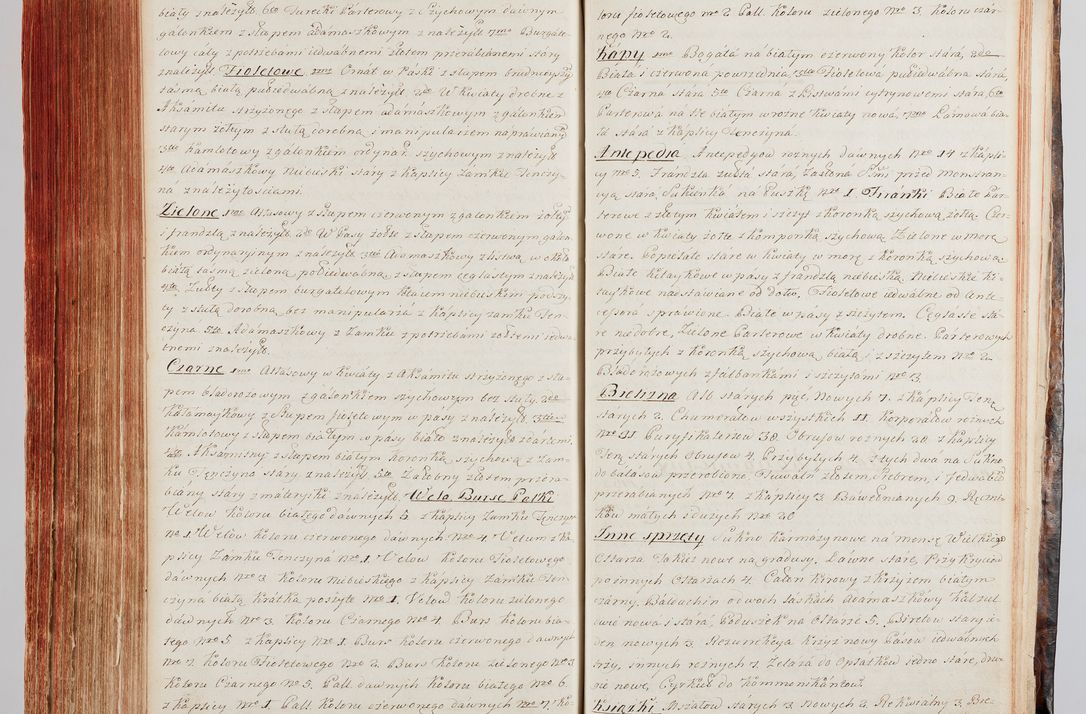 biały z należyt. 6to Turecki Parterowy z Szychowym dawnym
galonkiem z słupem adamaszkowym z należyt. 7mo Burgate-
towy cały z potrzebami jedwabnemi złotem przerabianemi stary
z należyt. Fioletowe 1mo Ornat w Paski z słupem
taśmą białą pułjedwabną z należyt. 2do W Kwiaty drobne z
Aksamitu strzyżonego z słupem adamaszkowym z galonkiem
starym żołtym z stułą dorobną i manipularzem naprawiany
3tio Kamlotowy z galonkiem ordynar. szychowym z należyt.
4to Adamaszkowy niebieski stary z Kaplicy Zamku Tenczy-
na z należytościami.
Zielone 1mo Atłasowy z słupem czerwonym z galonkiem żołtym
i frandzlą z należyt. 2do W Pasy żołte z słupem czerwonym galon-
kiem ordynaryinym z należyt. 3tio Adamaszkowy z listwą w około
białą tasmą zieloną pułjedwabną z słupem ceglastym z należyt.
4to Zułty z słupem burgatelowym
ty z stułą dorobną bez manipularza z Kaplicy zamku Ten-
czyna 5to Adamaszkowy z Zamku z potrzebami żołtemi jedwa-
bnemi z należyt.
Czarne 1mo Atłasowy w Kwiaty z Aksamitu strzyżonego z słu-
pem bladorożowym z galonkiem szychowym bez stuły. 2do
Kałamaykowy z słupem fioletowym w pasy z należyt. 3tio
Kamlotowy z słupem białym w pasy białe z należyt. zdartemi.
4to Aksamitny z słupem białym koronką szychową z Zam-
ku Tenczyna stary z należyt. 5to Żałobny złotem przera-
biany stary z materyiki z należyt. Wela Burse Palki
Welow Koloru białego dawnych 5. z Kaplicy Zamku Tenczyn
No 1. Welow koloru czerwonego dawnych No 4. Welum z Ka-
plicy Zamku Tenczyna No 1. Welow Koloru Fioletowego
dawnych No 3. Koloru niebieskiego z Kaplicy Zamku Ten-
czyna białą kratką poszyte No 1. Welow Koloru zielonego
dawnych No 3. Koloru Czarnego No 4. Burs koloru bia-
łego No 5. z Kaplicy No 1. Burs Koloru czerwonego dawnych
No 2. Koloru Fioletowego No 2. Burs Koloru zielonego No 3
Koloru Czarnego No 5. Pall dawnych Koloru białego No 6.
z Kaplicy No 1. Pall Koloru czerwonego dawnych No 7. Ko-
loru fioletowego No 2. Pall Koloru zielonego No 3. Koloru czar-
nego No 2.
Kapy 1mo Bogata na białym czerwony kolor stara, 2do
Biała i czerwona powszednia, 3tio Fioletowa pułjedwabna stara,
4to Czarna stara 5to Czarna z Listwami cytrynowemi stara, 6to
Parterowa na tle białym w rożne Kwiaty nowa, 7mo Lamowa bia-
ła stara z Kaplicy Tenczyna.
Antepedia Antepedyow rożnych dawnych No 14 z Kapli-
cy No 5. Frandzla żułta stara, Zasłona przed monstran-
cyą stara, Sukienka na Puszkę No 1. Firanki Białe Par-
terowe z złotym Kwiatem i szczyt z koronką szychową żołtą Czer-
wone w Kwiaty żołte z kamponką szychową, Zielone w morę
stare. Popielate stare w Kwiaty w morę z koronką szychową
Białe Kitaykowe w pasy z frandzlą niebieską, Niebieskie Ki-
taykowe nadstawiane od dołu, Fioletowe jedwabne od Ante-
cessora sprawione. Białe w pasy z szczytem. Ceglaste sta-
re niedobre, Zielone Parterowe w Kwiaty drobne. Parterowych
przybyłych z koronką szychową białą i szczytem No 2.
Bladorożowych z falbankami i szczytami No 3.
Bielizna Alb starych pięć, Nowych 7. z Kaplicy Tencz.
starych 2. Czumerałow wszystkich 11. Korporałow rożnych
No 11. Puryfikaterzow 38. Obrusow rożnych 20. z Kaplicy
Ten. starych Obrusow 4. Przybyłych 4. z tych dwa na Sukno
do balasow przerobione. Tuwaln złotem, Srebrem, i Jedwabiem
przerabianych No 7. z Kaplicy 3. Bawełnianych 9. Ręczni-
kow małych i dużych No 20
Inne sprzęty Sukno Karmazynowe na mensę Wielkiego
Ołtarza Takież nowe na gradusy. Dawne stare, Przykrycia
po innych Ołtarzach 4. Całun Kirowy z Krzyżem białym
czarny, Balduchin o dwoch laskach Adamaszkowy
wie nowa i stara, Poduszek na Ołtarze 5. Biretow stary je-
den nowych 3. Rezurrekcya Krzyż nowy Pasow jedwabnych
trzy, innych rożnych 7. Żelaza do Opłatkow jedno stare, dru-
gie nowe, Cyrkiel do Kommonikantow.
Książki Mszałow starych 3. Nowych 2. Rekwialny 3. Bre